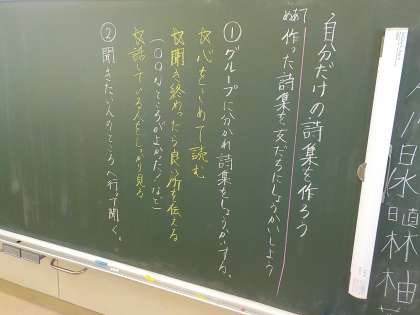 自分だけの詩集を作ろう
めあて 作った詩集を友だちにしょうかいしよう
①グループに分かれ詩集をしょうかいする。
心をこめて読む
聞き終わったら良い所を伝える
(〇〇なところがよかった!など)
話している人をしっかり見る
②聞きたい人のところへ行って聞く。